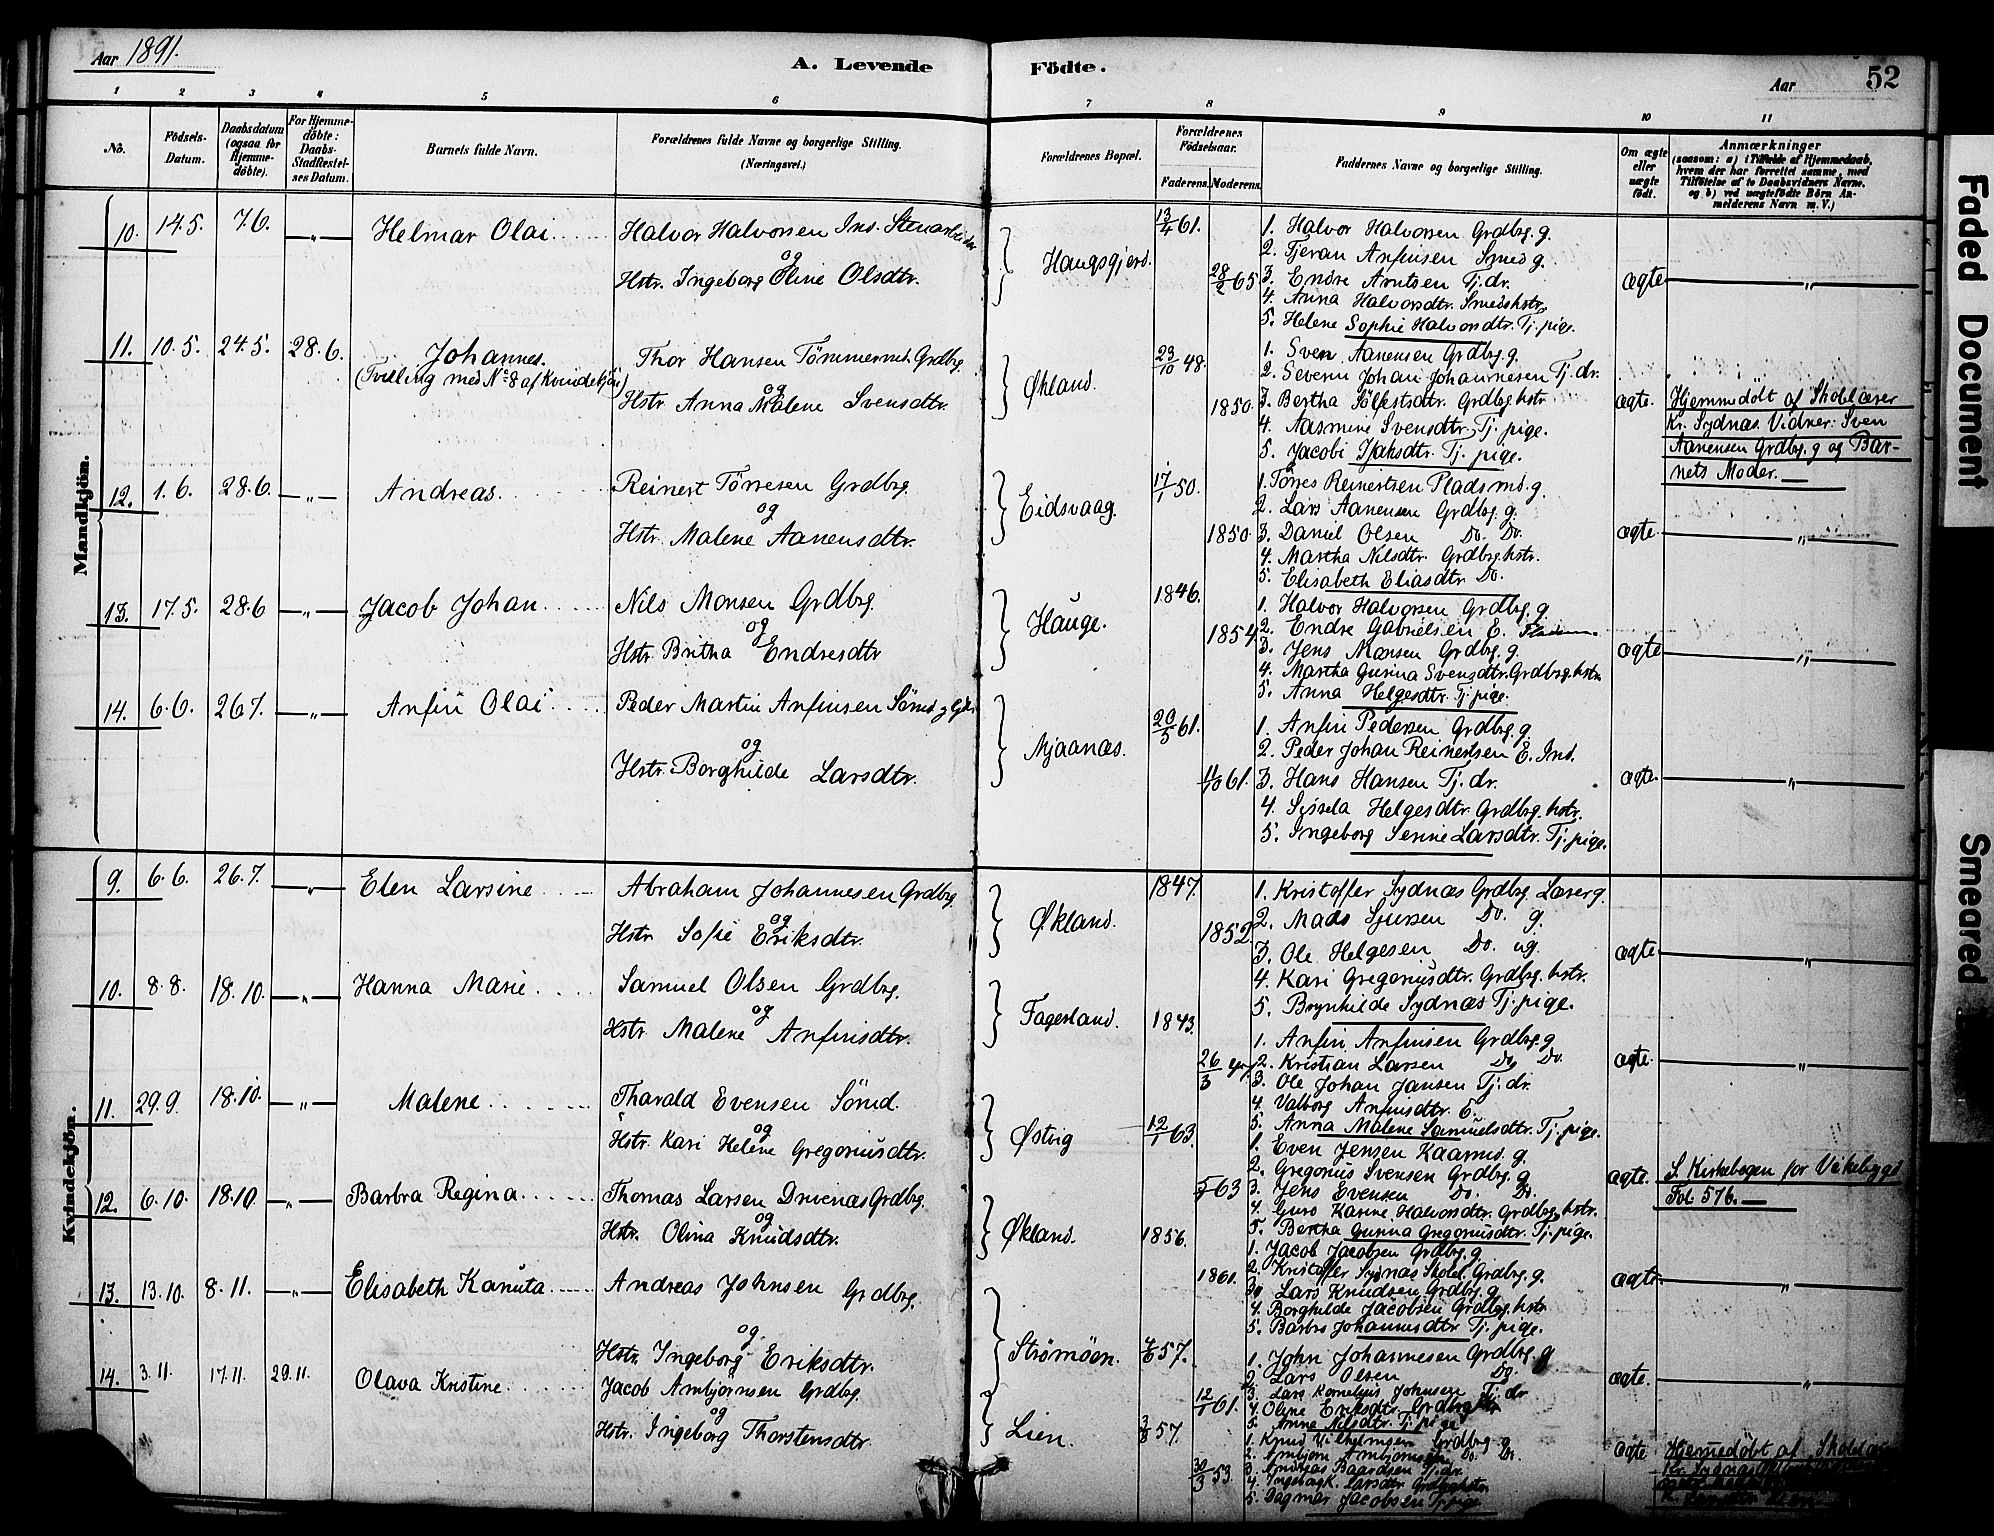 Aar 1891.
A. Levende Födte.
Aar
52
1 2 3 4 5 6 7 8 9 10 11
No.
Födsels-Datum.
Daabsdatum (ogsaa for Hjemme-döbte).
For Hjemme-döbte: Daabs-Stadfæstel-ses Datum.
Barnets fulde Navn.
Forældrenes fulde Navne og borgerlige Stilling. (Næringsvei.)
Forældrenes Bopæl.
Forældrenes Födselsaar.
Faderens. Moderens.
Faddernes Navne og borgerlige Stilling.
Om ægte eller uægte födt.
Anmærkninger
(saasom: a) i Tilfælde af Hjemmedaab, hvem der har forrettet samme, med Tilföielse af to Daabsvidners Navne, og b) ved uægtefödte Börn An-melderens Navn m. V.)
Mandkjön.
10. 14.5. 7.6. -"- Helmar Olai
Halvor Halvorsen Ins. Stenarbeider
og
Hstr. Ingeborg Oline Olsdtr.
Haugsgjerd.
13/4 61.
28/2 65
1. Halvor Halvorsen Grdbrg. g.
2. Tjeran Anfinsen Smed g.
3. Endre Arntsen Tj. dr.
4. Anna Halvorsdtr. Smedshstr.
5. Helene Sophie Halvorsdtr. Tj. pige.
ægte "
11. 10.5. 24.5. 28.6. Johannes.
(Tvilling med No 8 af Kvindekjön)
Thor Hansen Tömmermd. Grdbrg.
og
Hstr. Anna Malene Svensdtr.
Økland.
23/10 48.
1850.
1. Sven Aanensen Grdbrg. g.
2. Severin Johan Johannesen Tj. dr.
3. Bertha Sölfestsdtr. Grdbrg. hstr.
4. Aasmine Svensdtr. Tj. pige.
5. Jacobi Isaksdtr. Tj. pige.
ægte.
Hjemmedøbt af Skolelærer
Kr. Sydnæs. Vidner: Sven
Aanensen Grdbrg. g og Bar-
nets Moder.
12. 1.6. 28.6. -"- Andreas.
Reinert Törresen Grdbrg.
og
Hstr. Malene Aanensdtr.
Eidsvaag.
17/1 50.
1850.
1. Törres Reinertsen Pladsmd. g.
2. Lars Aanensen Grdbrg. g.
3. Daniel Olsen Do. Do.
4. Martha Nilsdtr. Grdbrg. hstr.
5. Elisabeth Eliasdtr. Do.
ægte. "
13. 17.5. 28.6 -"- Jacob Johan
Nils Monsen Grdbrg.
og
Hstr. Britha Endresdtr
Hauge.
1846.
1854.
1. Halvor Halvorsen Grdbrg. g
2. Endre Gabrielsen E.
3. Jens Monsen Grdbrg. g.
4. Martha Gurina Svensdtr. Grdbrg. hstr.
5. Anna Helgesdtr. Tj. pige.
ægte "
14. 6.6. 26.7. -"- Anfin Olai
Peder Martin Anfinsen Sömd.
og
Hstr. Borghilde Larsdtr.
Mjaanæs.
20/5 61.
11/10 61.
1. Anfin Pedersen Grdbrg. g.
2. Peder Johan Reinertsen E. Ins.
3. Hans Hansen Tj. dr.
4. Syssela Helgesdtr. Grdbrg. hstr.
5. Ingeborg Serine Larsdtr. Tj. pige.
ægte. "
Kvindekjön.
9. 6.6. 26.7. -"- Elen Larsine
Abraham Johannesen Grdbrg.
og
Hstr. Sofie Eriksdtr.
Økland.
1847.
1852
1. Kristoffer Sydnæs Grdbrg. Lærer g.
2. Mads Sjursen Do. g.
3. Ole Helgesen Do. ug.
4. Kari Gregoriusdtr. Grdbrg. hstr.
5. Brynhilde Sydnæs Tj. pige.
ægte "
10. 8.8. 18.10. -"- Hanna Marie
Samuel Olsen Grdbrg.
og
Hstr. Malene Anfinsdtr.
Fagerland.
1843.
26/3
1. Anfin Anfinsen Grdbrg. g
2. Kristian Larsen Do. Do.
3. Ole Johan Jansen Tj. dr.
4. Valborg Anfinsdtr. E.
5. Anna Malene Samuelsdtr. Tj. pige.
ægte. "
11. 29.9. 18.10. -"- Malene
Tharald Evensen Sömd.
og
Hstr. Kari Helene Gregoriusdtr.
Østvig
12/1 63.
5/7 63
1. Even Jensen Kaarmd. g.
2. Gregorius Svensen Grdbrg. g
3. Jens Evensen Do. Do.
4. Guro Karine Halvorsdtr. Grdbrg. hstr.
5. Bertha Gurina Gregoriusdtr. Tj. pige.
ægte.
S. Kirkebogen for Vikebygd
Fol. 576.
12. 6.10. 18.10. -"- Barbra Regina
Thomas Larsen Drivenæs Grdbrg.
og
Hstr. Olina Knudsdtr.
Økland.
1856.
1861.
1. Jacob Jacobsen Grdbrg. g
2. Kristoffer Sydnæs Skolel. Grdbrg. g.
3. Lars Knudsen Grdbrg. g
4. Borghilde Jacobsen Grdbrg. hstr.
5. Barbro Johannesdtr Tj. pige.
ægte "
13. 13.10. 8.11. -"- Elisabeth Kanuta
Andreas Johnsen Grdbrg.
og
Hstr. Ingeborg Eriksdtr.
Strömöen.
4/6 57.
12/1 61.
1. John Johannesen Grdbrg. g
2. Lars Olsen Do.
3. Lars Kornelius Johnsen Tj. dr
4. Oline Eriksdtr. Grdbrg. hstr
5. Anna Nilsdtr. Tj. pige
ægte. "
14. 3.11. 17.11. 29.11. Olava Kristine
Jacob Arnbjörnsen Grdbrg.
og
Hstr. Ingeborg Thorstensdtr.
Lien.
3/8 57.
30/3 53.
1. Knud Vilhelmsen Grdbrg. g
2. Arnbjörn Arnbjörnsen Do. Do.
3. Andreas Baardsen Tj. dr.
4. Ingeborg K. Larsdtr Grdbrg. hstr
5. Dagmar Jacobsen Tj. pige
ægte
Hjemmedøbt af Skolelærer
Kr. Sydnæs
Faded Document
Smeared